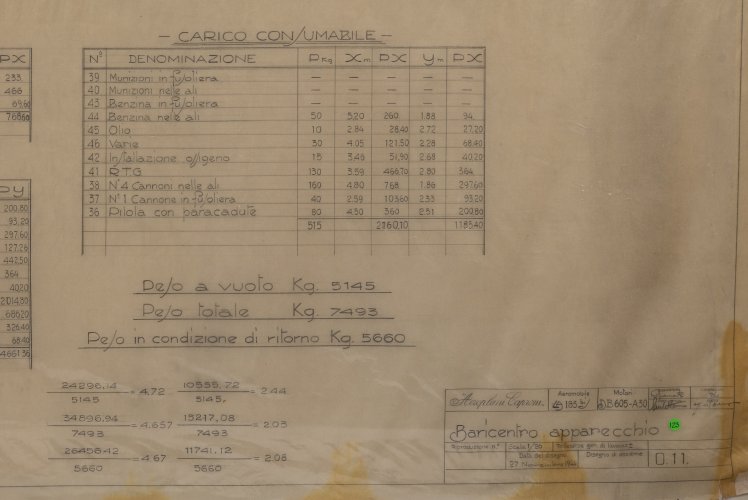 — CARICO CONSUMABILE —
Nº DENOMINAZIONE P Kg X m PX Y m PX
39 Munizioni in fusoliera — — — — —
40 Munizioni nelle ali — — — — —
43 Benzina in fusoliera — — — — —
44 Benzina nelle ali 50 5,20 260 1.88 94
45 Olio 10 2.84 28,40 2.72 27.20
46 Varie 30 4.05 121.50 2.28 68.40
42 Installazione ossigeno 15 3,46 51,90 2.68 40.20
41 R.T.G 130 3.59 466.70 2.80 364
38 Nº4 Cannoni nelle ali 160 4.80 768 1.86 297.60
37 Nº1 Cannone in fusoliera 40 2.59 103.60 2.33 93.20
36 Pilota con paracadute 80 4.50 360 2.51 200.80
515 2160,10 1185.40
PX
233
466
69,60
768.60
PY
200.80
93.20
297.60
127.26
442.50
364
40.20
2014.80
686.20
326.40
68.40
4661.36
Peso a vuoto Kg. 5145
Peso totale Kg. 7493
Peso in condizione di ritorno Kg. 5660
24296,14 / 5145 = 4,72 10555.72 / 5145, = 2.44
34896,94 / 7493 = 4.657 15217,08 / 7493 = 2.03
26456.42 / 5660 = 4.67 11741.12 / 5660 = 2.08
Aeroplani Caproni Aeromobile Motori D.B.605-A30
Baricentro apparecchio 123
Riproduzione n.º Scala 1/50 Tolleranze gen. di lavoraz.
Data del disegno Disegno di assieme
27 Novembre 0.11.